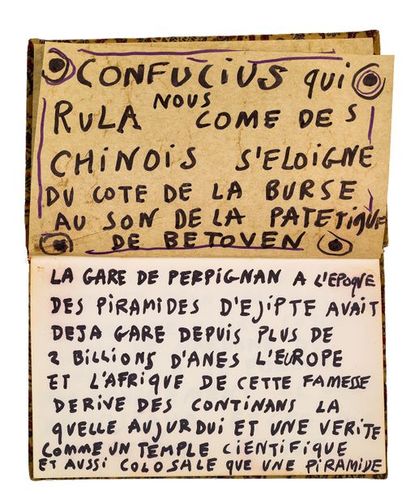 CONFUCIUS qui
NOUS
RULA COME DES
CHINOIS S'ELOIGNE
DU COTE DE LA BURSE
AU SON DE LA PATETIQUE
DE BETOVEN
LA GARE DE PERPIGNAN A L'EPOQUE
DES PIRAMIDES D'EJIPTE AVAIT
DEJA GARE DEPUIS PLUS DE
2 BILLIONS D'ANES L'EUROPE
ET L'AFRIQUE DE CETTE FAMESSE
DERIVE DES CONTINANS LA
QUELLE AUJURDUI ET UNE VERITE
COMME UN TEMPLE CIENTIFIQUE
ET AUSSI COLOSALE QUE UNE PIRAMIDE